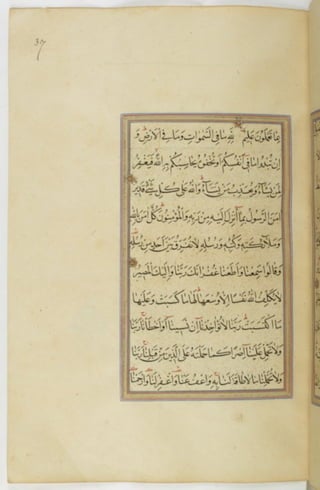 37
بما تعملون عليم لله ما في السموات وما في الارض و
ان تبدوا ما في انفسكم او تخفوه يحاسبكم به الله فيغفر
لمن يشاء ويعذب من يشاء والله على كل شيء قدير
امن الرسول بما انزل اليه من ربه والمؤمنون كل امن بالله
وملائكته وكتبه ورسله لا نفرق بين احد من رسله
وقالوا سمعنا واطعنا غفرانك ربنا واليك المصير
لا يكلف الله نفسا الا وسعها لها ما كسبت وعليها
ما اكتسبت ربنا لا تؤاخذنا ان نسينا او اخطانا ربنا
ولا تحمل علينا اصرا كما حملته على الذين من قبلنا ربنا
ولا تحملنا ما لا طاقة لنا به واعف عنا واغفر لنا وارحمنا